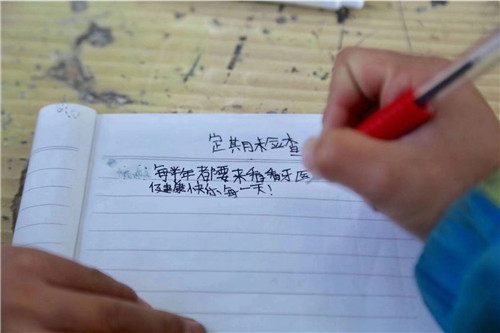 定期检查
每半年都要来看看牙医
健康快乐每一天!